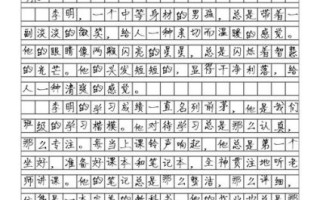 李明，一个中等身材的男孩，总是带着一
副淡淡的微笑，给人一种亲切而温暖的感觉。
他的眼睛像两颗闪亮的星星，总是闪烁着智慧
的光芒。他的头发短短的，显得干净利落，给
人一种清爽的感觉。
李明的学习成绩一直名列前茅，他是我们
班级的学习楷模。他对待学习总是那么认真，
那么专注。每当上课铃声响起，他总是第一个
坐好，准备好课本和笔记本，全神贯注地听老
师讲课。他的笔记总是那么整洁，那么详细，